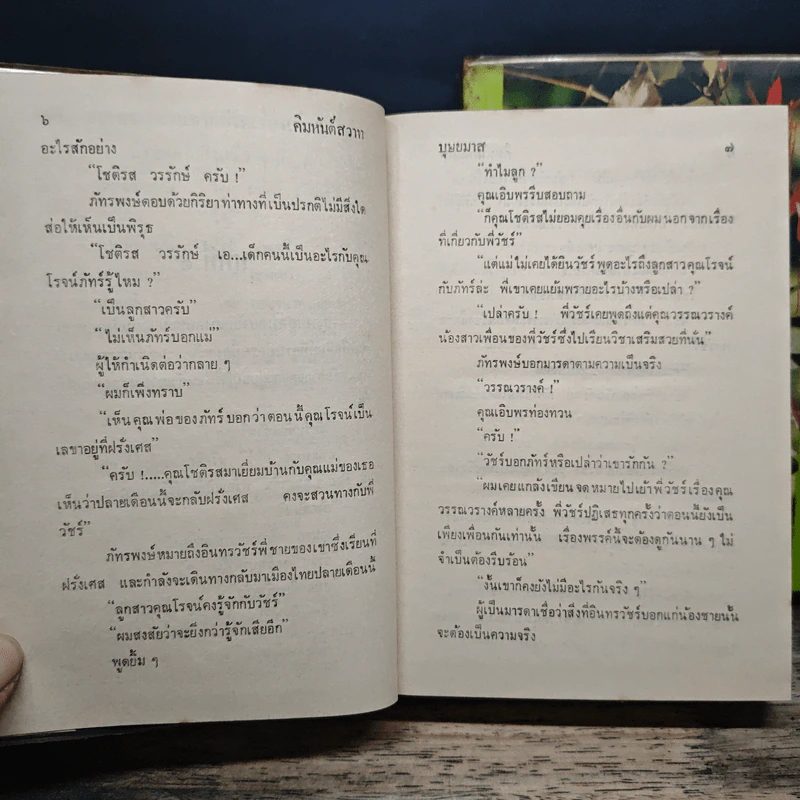 ๖
คิมหันต์สวาท
อะไรสักอย่าง
“โชติรส วรรักษ์ ครับ !”
ภัทรพงษ์ตอบด้วยกิริยาท่าทางที่เป็นปรกติไม่มีสิ่งใด
ส่อให้เห็นเป็นพิรุธ
“โชติรส วรรักษ์ เอ...เด็กคนนี้เป็นอะไรกับคุณ
โรจน์ภัทร์รู้ไหม ?”
“เป็นลูกสาวครับ”
“ไม่เห็นภัทร์บอกแม่”
ผู้ให้กำเนิดต่อว่ากลาย ๆ
“ผมก็เพิ่งทราบ”
“เห็นคุณพ่อของภัทร์บอกว่าตอนนี้คุณโรจน์เป็น
เลขาอยู่ที่ฝรั่งเศส”
“ครับ !.....คุณโชติรสมาเยี่ยมบ้านกับคุณแม่ของเธอ
เห็นว่าปลายเดือนนี้จะกลับฝรั่งเศส คงจะสวนทางกับพี่
วัชร์”
ภัทรพงษ์หมายถึงอินทรวัชร์พี่ชายของเขาซึ่งเรียนที่
ฝรั่งเศส และกำลังจะเดินทางกลับมาเมืองไทยปลายเดือนนี้
“ลูกสาวคุณโรจน์คงรู้จักกับวัชร์”
“ผมสงสัยว่าจะยิ่งกว่ารู้จักเสียอีก”
พูดยิ้ม ๆ
บุษยมาส
๗
“ทำไมลูก ?”
คุณเอิบพรรีบสอบถาม
“ก็คุณโชติรสไม่ยอมคุยเรื่องอื่นกับผมนอกจากเรื่อง
ที่เกี่ยวกับพี่วัชร์”
“แต่แม่ไม่เคยได้ยินวัชร์พูดอะไรถึงลูกสาวคุณโรจน์
กับภัทร์ล่ะ พี่เขาเคยแย้มพรายอะไรบ้างหรือเปล่า ?”
“เปล่าครับ ! พี่วัชร์เคยพูดถึงแต่คุณวรรณวรางค์
น้องสาวเพื่อนของพี่วัชร์ซึ่งไปเรียนวิชาเสริมสวยที่นั่น”
ภัทรพงษ์บอกมารดาตามความเป็นจริง
“วรรณวรางค์ !”
คุณเอิบพรท่องทวน
“ครับ !”
“วัชร์บอกภัทร์หรือเปล่าว่าเขารักกัน ?”
“ผมเคยแกล้งเขียนจดหมายไปเย้าพี่วัชร์เรื่องคุณ
วรรณวรางค์หลายครั้ง พี่วัชร์ปฏิเสธทุกครั้งว่าตอนนี้ยังเป็น
เพียงเพื่อนกันเท่านั้น เรื่องพรรค์นี้จะต้องดูกันนาน ๆ ไม่
จำเป็นต้องรีบร้อน”
“งั้นเขาก็คงยังไม่มีอะไรกันจริง ๆ”
ผู้เป็นมารดาเชื่อว่าสิ่งที่อินทรวัชร์บอกแก่น้องชายนั้น
จะต้องเป็นความจริง